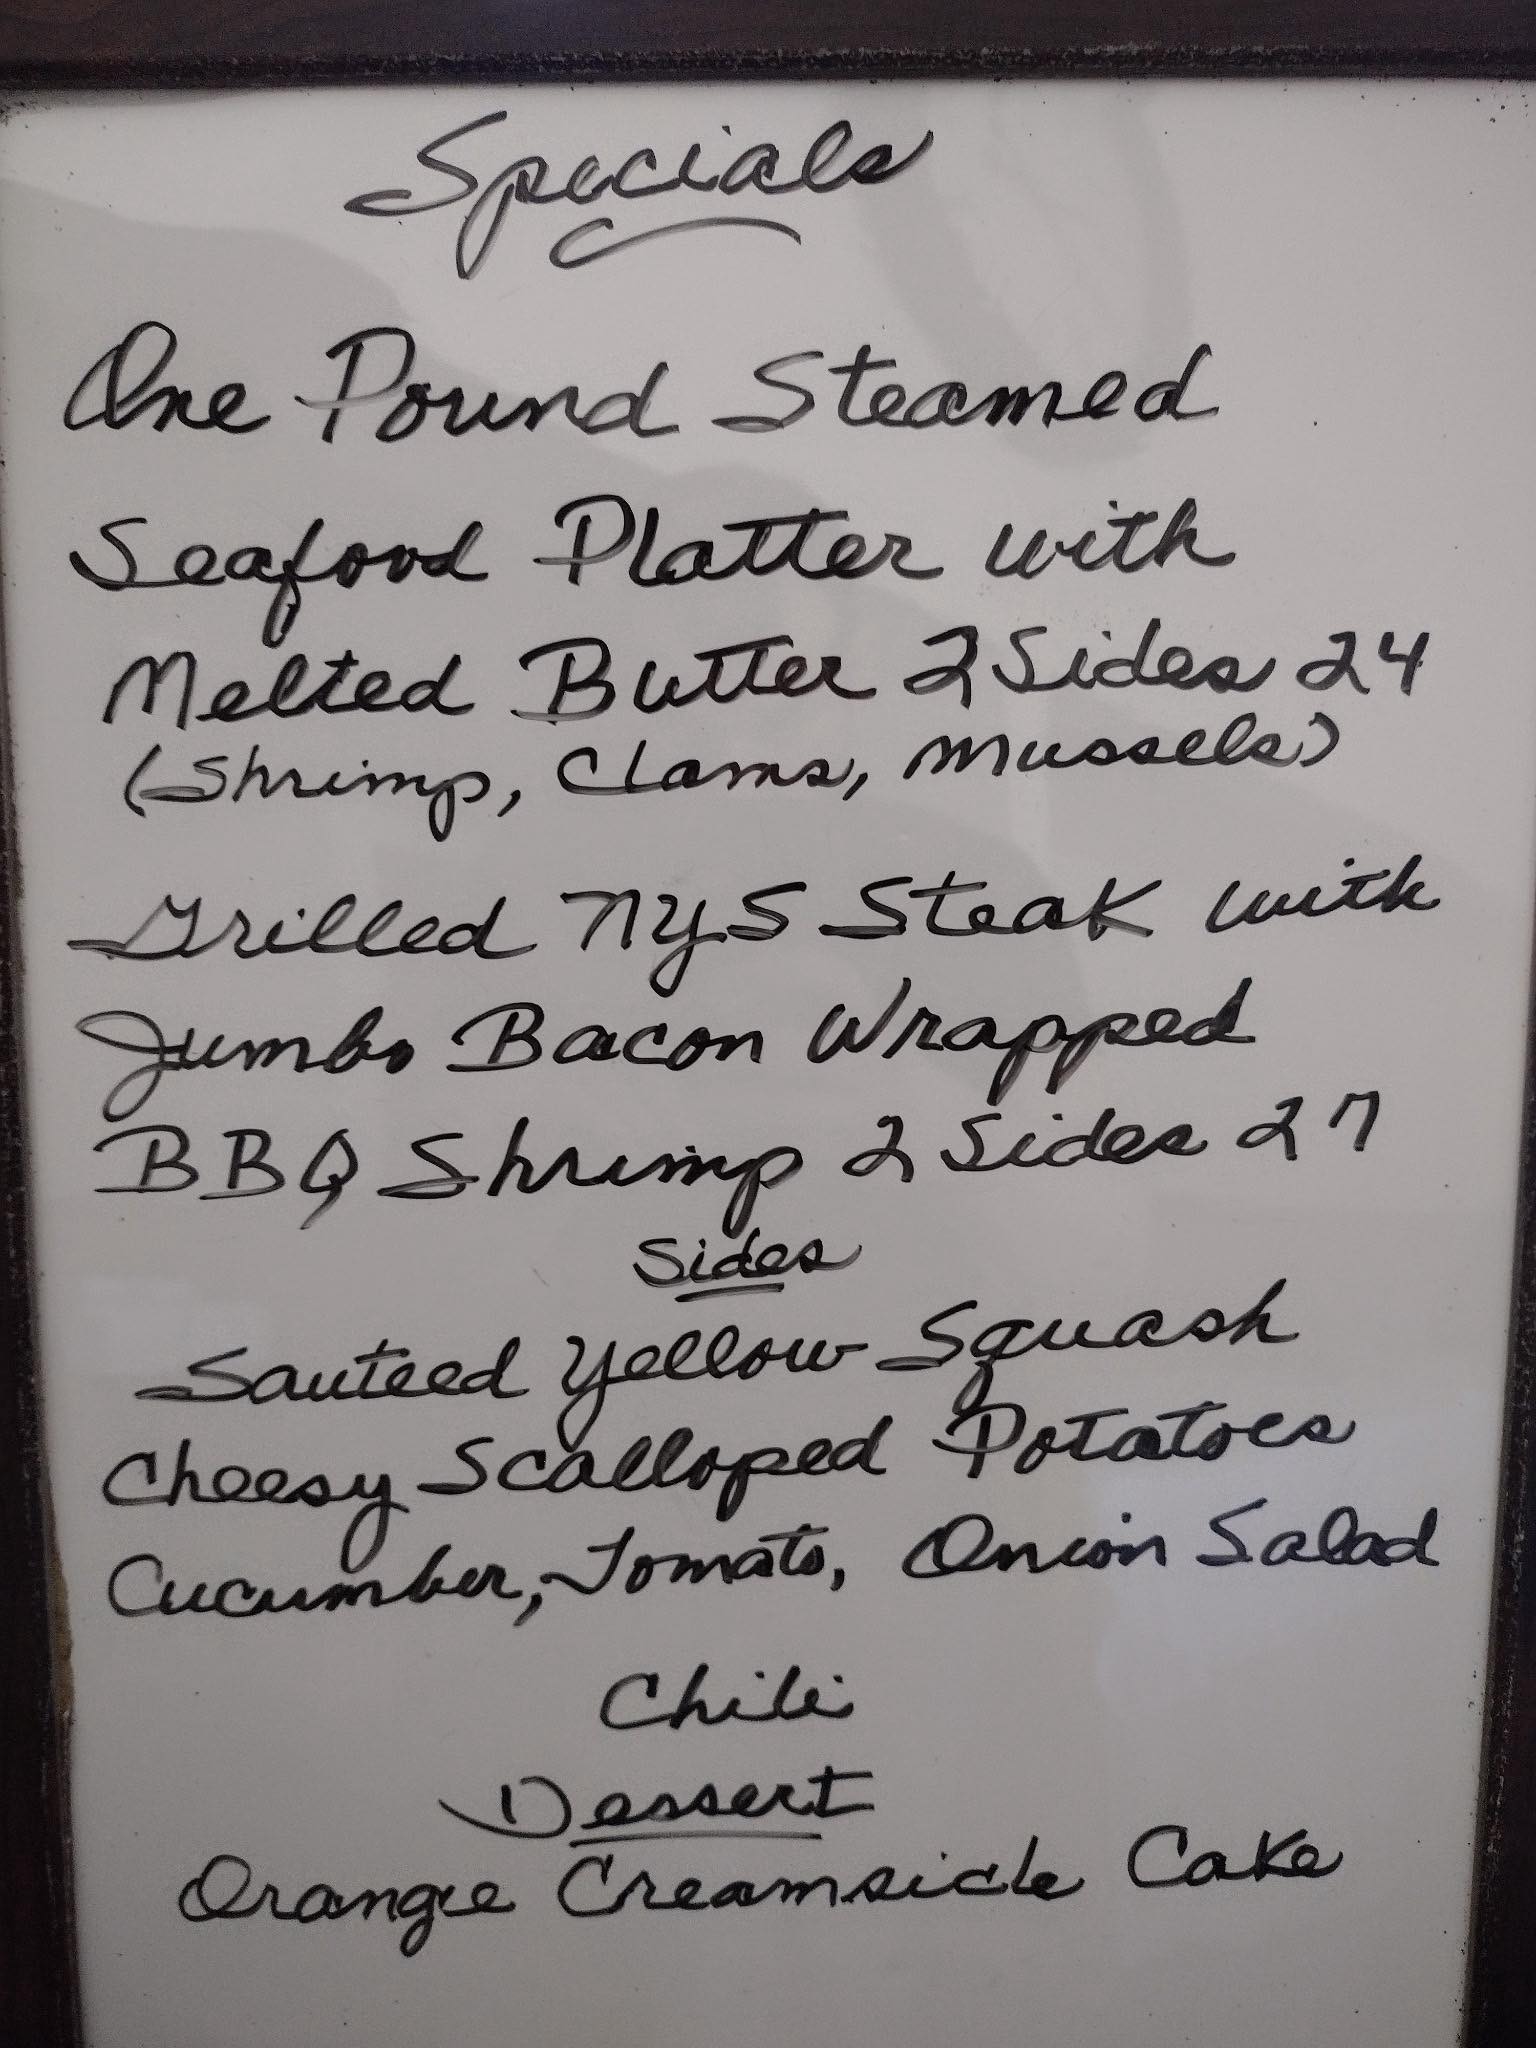 Specials
One Pound Steamed
Seafood Platter with
Melted Butter 2 Sides 24
(Shrimp, Clams, Mussels)
Grilled NYS Steak with
Jumbo Bacon Wrapped
BBQ Shrimp 2 Sides 27
Sides
Sauteed Yellow Squash
Cheesy Scalloped Potatoes
Cucumber, Tomato, Onion Salad
Chili
Dessert
Orange Creamsicle Cake